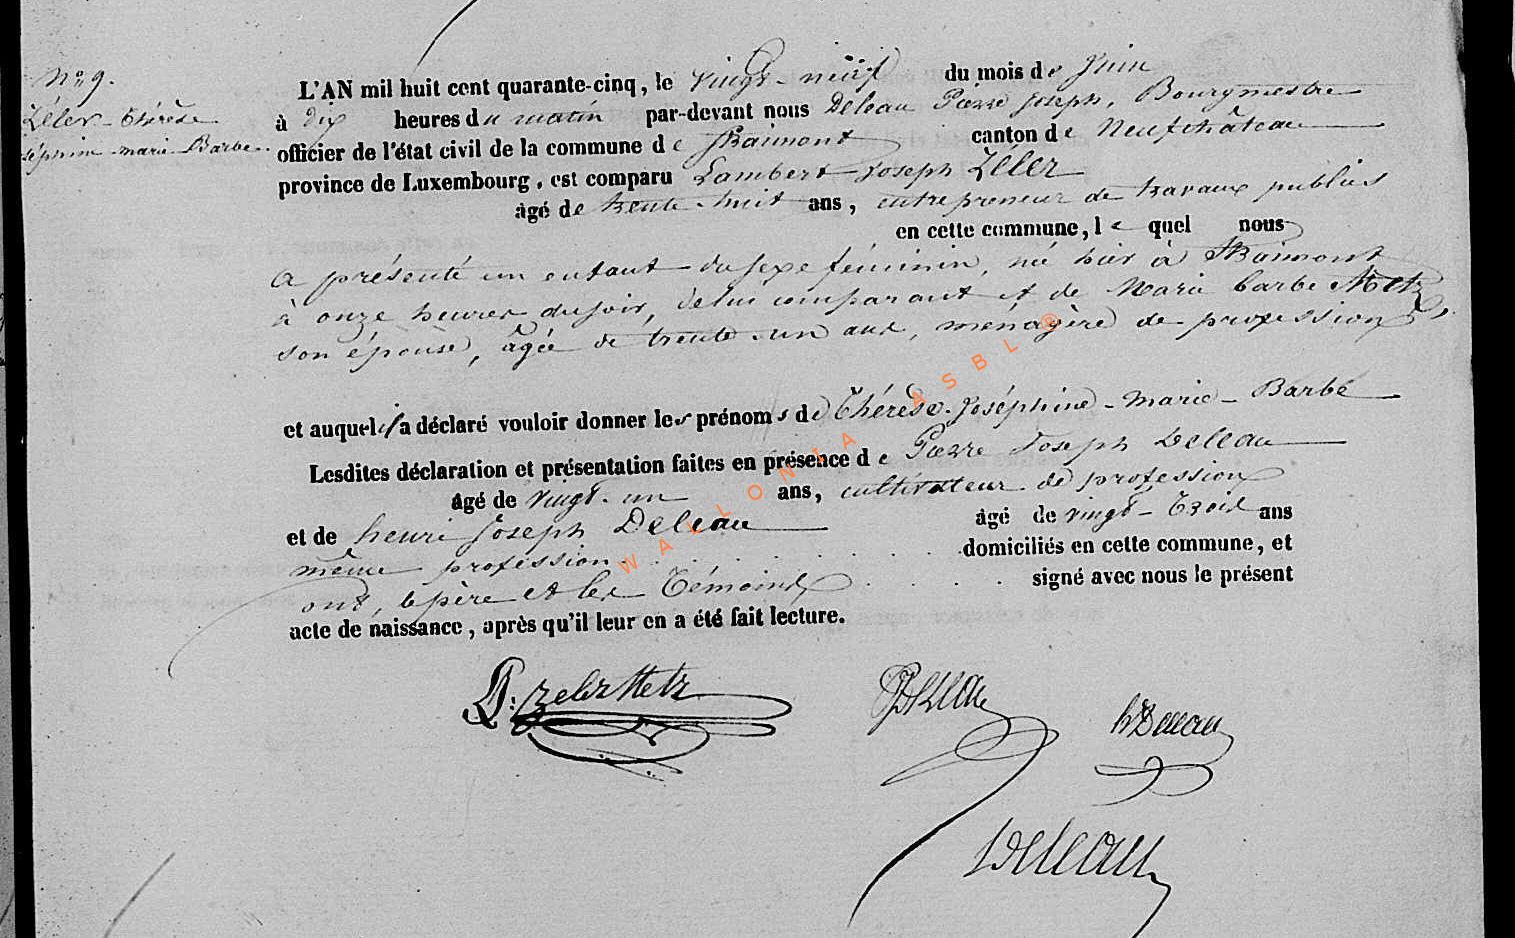 N° 9.
Zéler Thérèse
séphine marie Barbe.
L'AN mil huit cent quarante-cinq, le vingt-neuf du mois de Juin
à dix heures du matin par-devant nous Deleau Pierre Joseph, Bourgmestre
officier de l'état civil de la commune de Straimont canton de Neufchâteau
province de Luxembourg, est comparu Lambert Joseph Zéler
âgé de trente huit ans, entrepreneur de travaux publics
en cette commune, lequel nous
a présenté un enfant du sexe féminin, né hier à Straimont
à onze heures du soir, de lui comparant et de Marie barbe Metz,
son épouse, âgée de trente un ans, ménagère de profession
et auquel il a déclaré vouloir donner les prénoms de Thérèse-Joséphine-marie-Barbe
Lesdites déclaration et présentation faites en présence de Pierre Joseph Deleau
âgé de vingt-un ans, cultivateur de profession
et de henri Joseph Deleau âgé de vingt-trois ans
même profession domiciliés en cette commune, et
ont, le père et les Témoins signé avec nous le présent
acte de naissance, après qu'il leur en a été fait lecture.
L: zeler Metz
PJDeleau
hDeleau
Deleau
WALLONIA ASBL ®